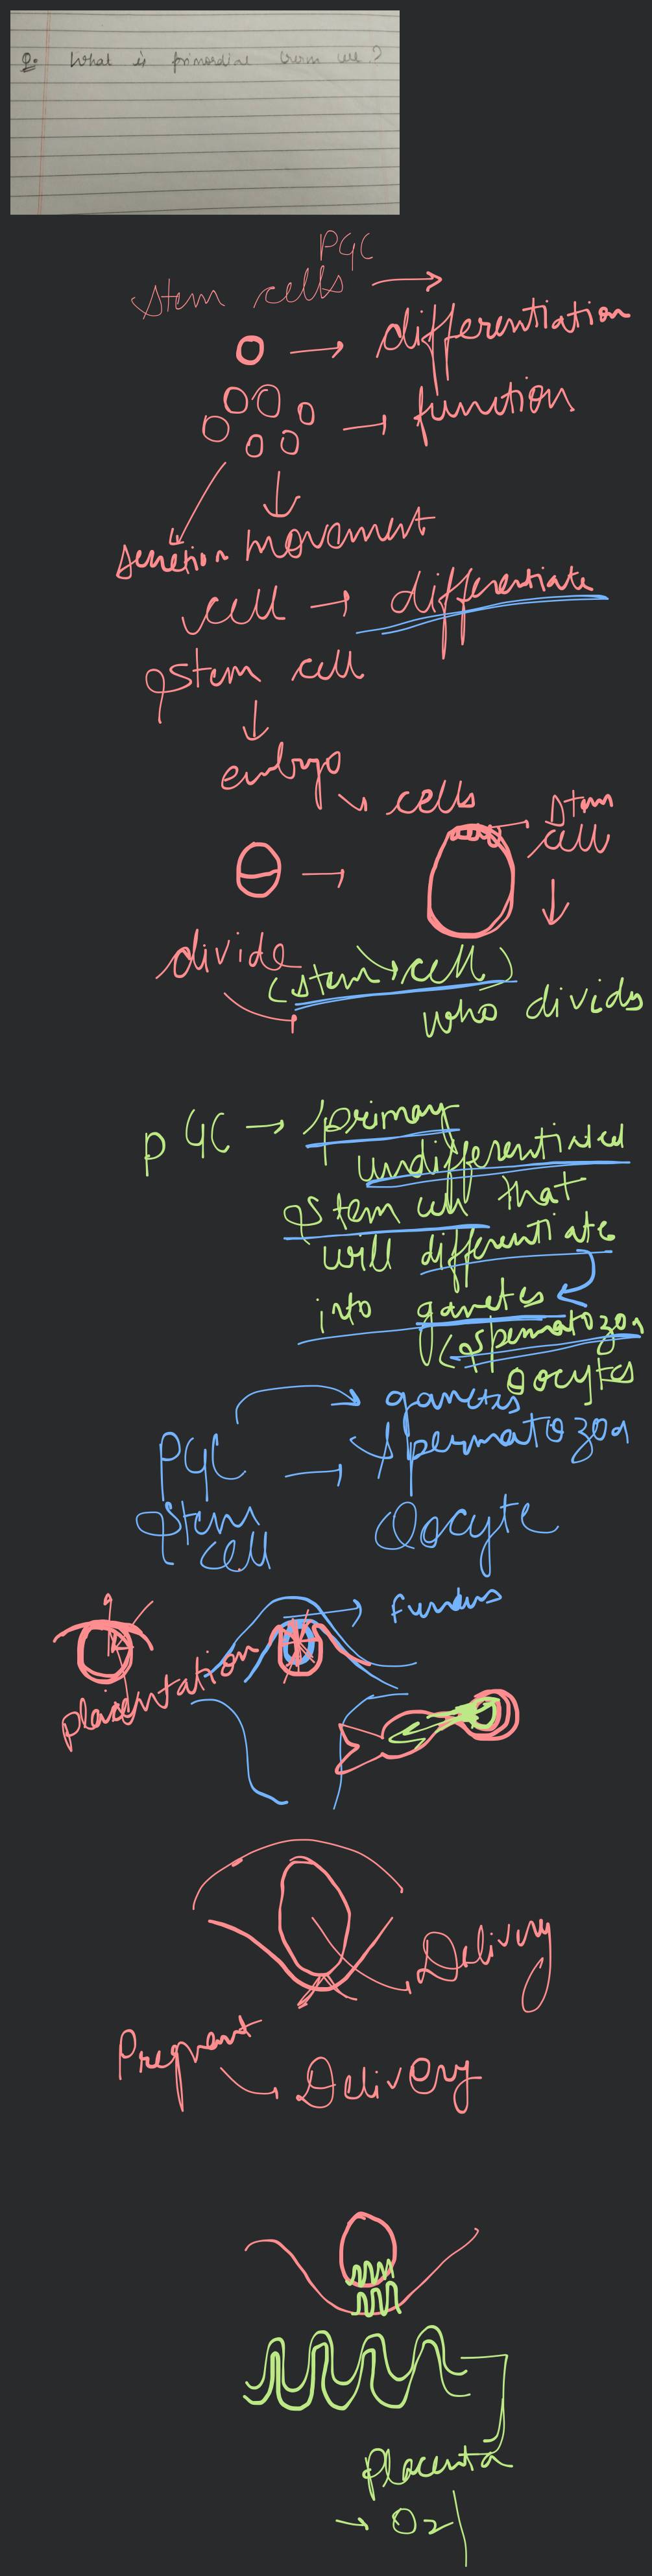 Q. What is primordial Germ cell?
PGC
Stem cells →
→ differentiation
→ function
secretion movement
cell → differentiate
Stem cell
↓
embryo
cells
Stem
cell
divide
(stem cell)
who divides
PGC → primary
undifferentiated
Stem cell that
will differentiate
into gametes
(spermatozoa
oocytes
gametes
PGC → Spermatozoa
Stem
cell
Oocyte
fundus
placentation
Delivery
Pregnant
Delivery
Placenta
→ O2